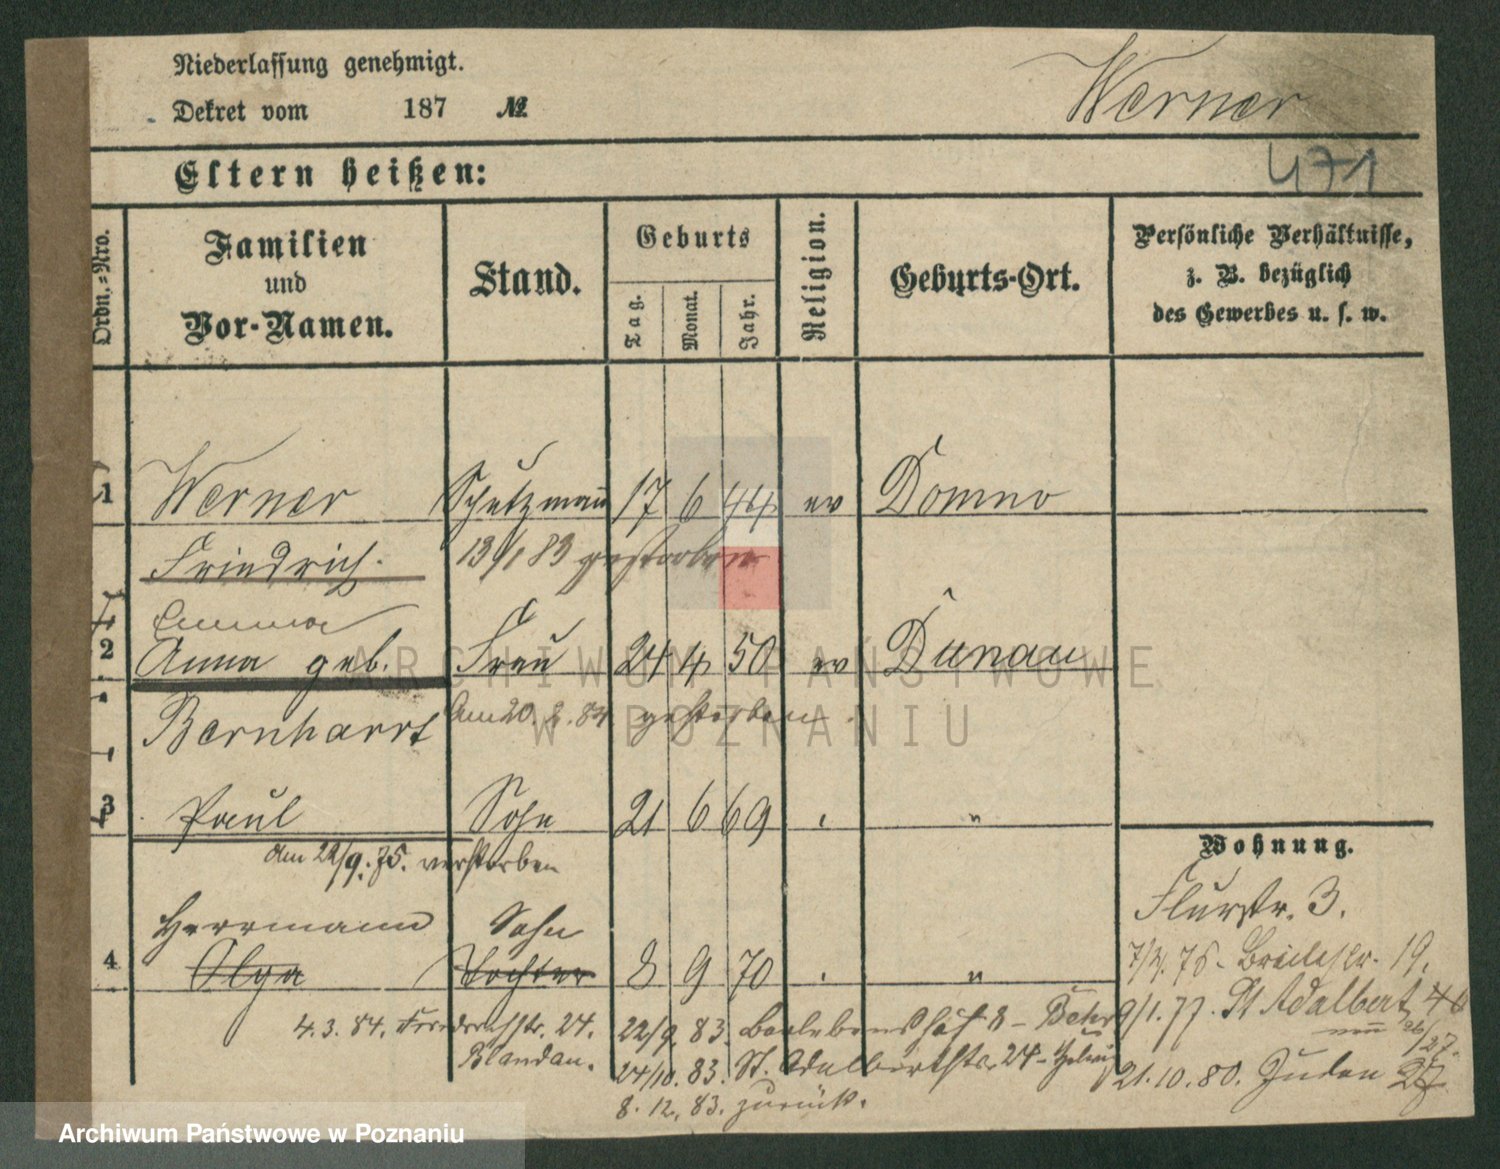 Niederlassung genehmigt.
Werner
Dekret vom 187 №
Eltern heißen:
471
Ordn.=Nro.
Familien
und
Vor-Namen.
Stand.
Geburts
Tag.
Monat.
Jahr.
Religion.
Geburts-Ort.
Persönliche Verhältnisse,
z. B. bezüglich
des Gewerbes u. s. w.
1 Werner Schutzmann 17 6 44 ev Domno
Friedrich. 13/1 83 gestorben
Emma
2 Anna geb. Frau 24 4 50 ev Dunau
Bernhardt Am 20. 2. 84 gestorben.
3 Paul Sohn 21 6 69 "
am 22/9. 75. verstorben
Wohnung.
Flurstr. 3.
Herrmann Sohn
4 Olga Tochter 8 9 70 "
7/4. 75. Breitestr. 19.
9/1. 77. St Adalbert 40
nun 26/27.
21. 10. 80. Juden 27
4. 3. 84. Friedrichstr. 24.
Blandau.
22/9. 83. Barlebenshof 8 -
24/10. 83. St. Adalbertstr. 24 -
8. 12. 83. zurück.
ARCHIWUM PAŃSTWOWE
W POZNANIU
Archiwum Państwowe w Poznaniu